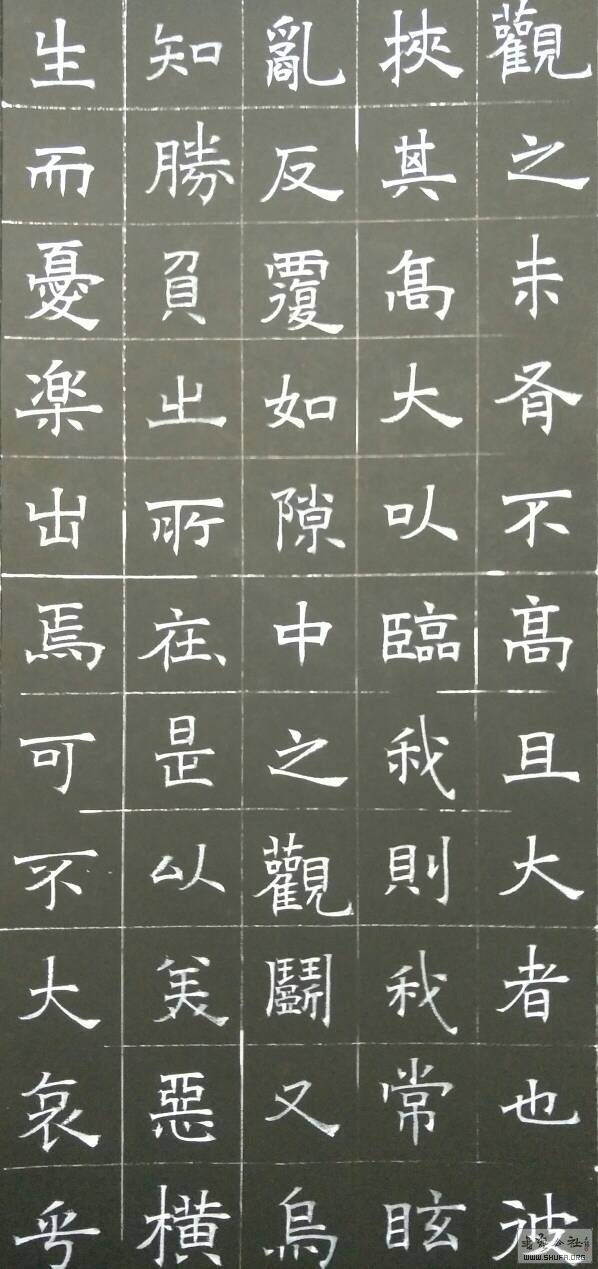 觀之未有不髙且大者也彼
挾其髙大以臨我則我常眩
亂反覆如隙中之觀鬭又烏
知勝負之所在是以美惡橫
生而憂楽出焉可不大哀乎
WWW.SHUFA.ORG